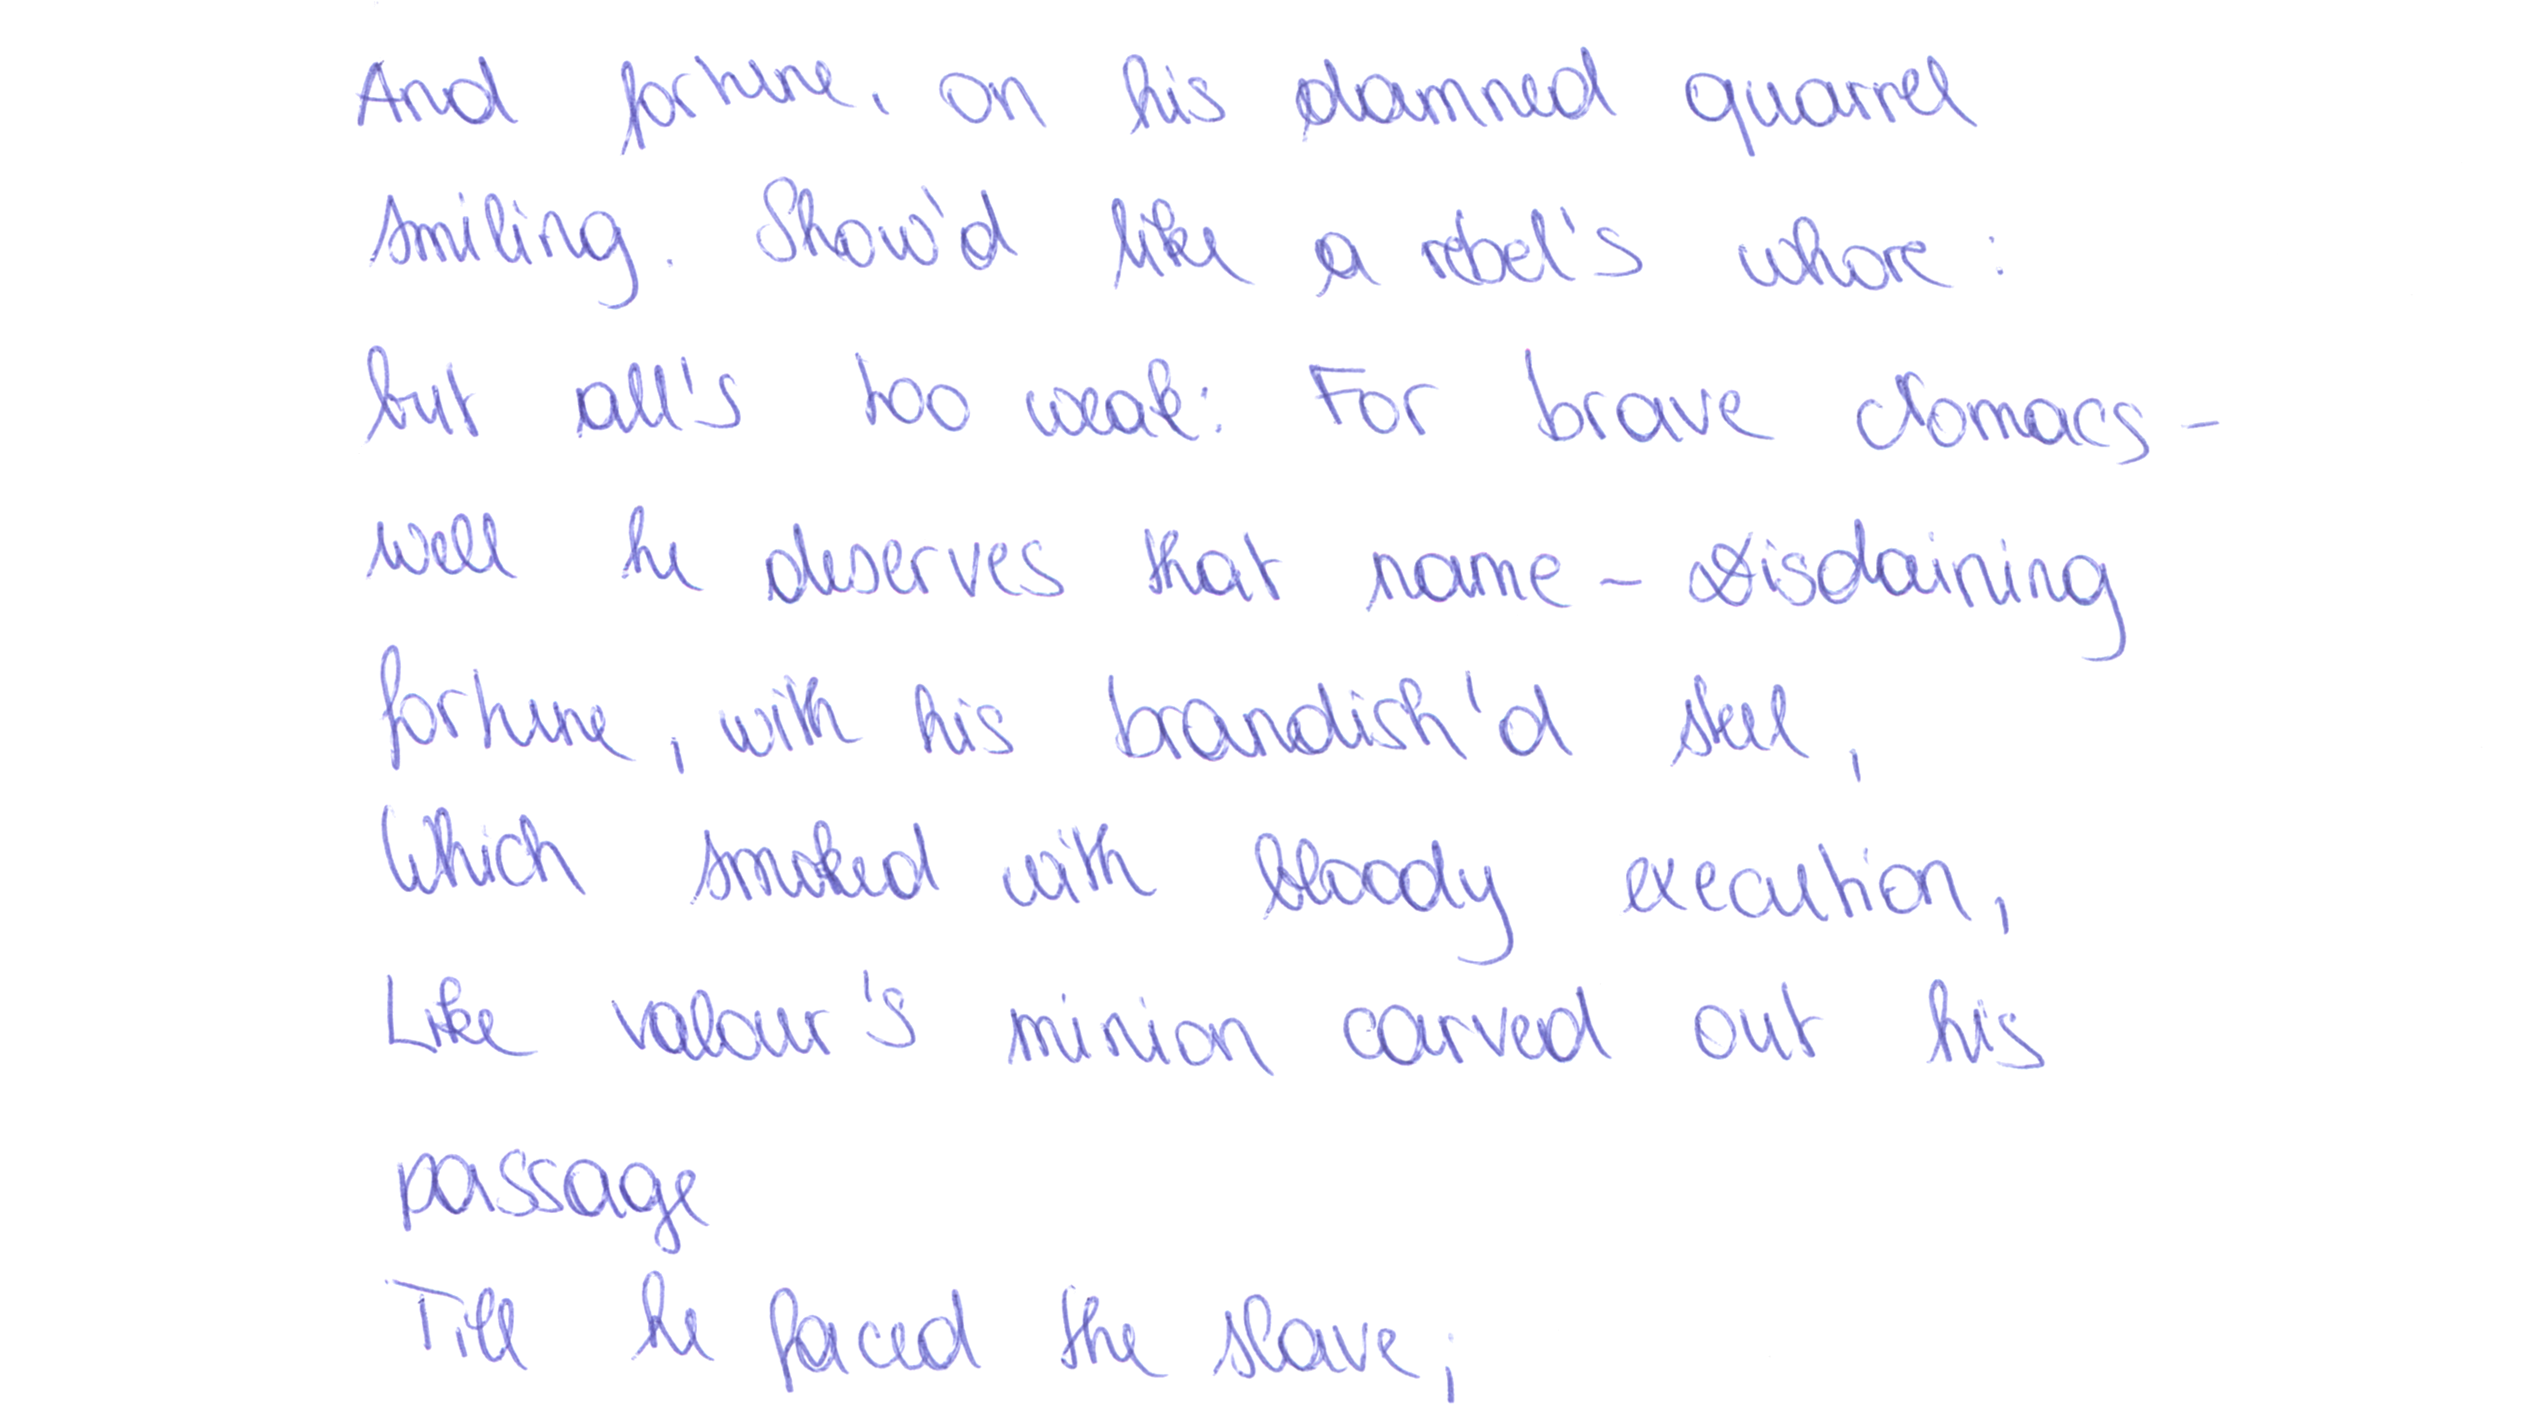 And fortune, on his damned quarrel
smiling. Show'd like a rebel's whore:
but all's too weak: For brave clomacs-
well he deserves that name - Disdaining
fortune, with his brandish'd steel,
Which smoked with bloody execution,
Like valour's minion carved out his
passage
Till he faced the slave;